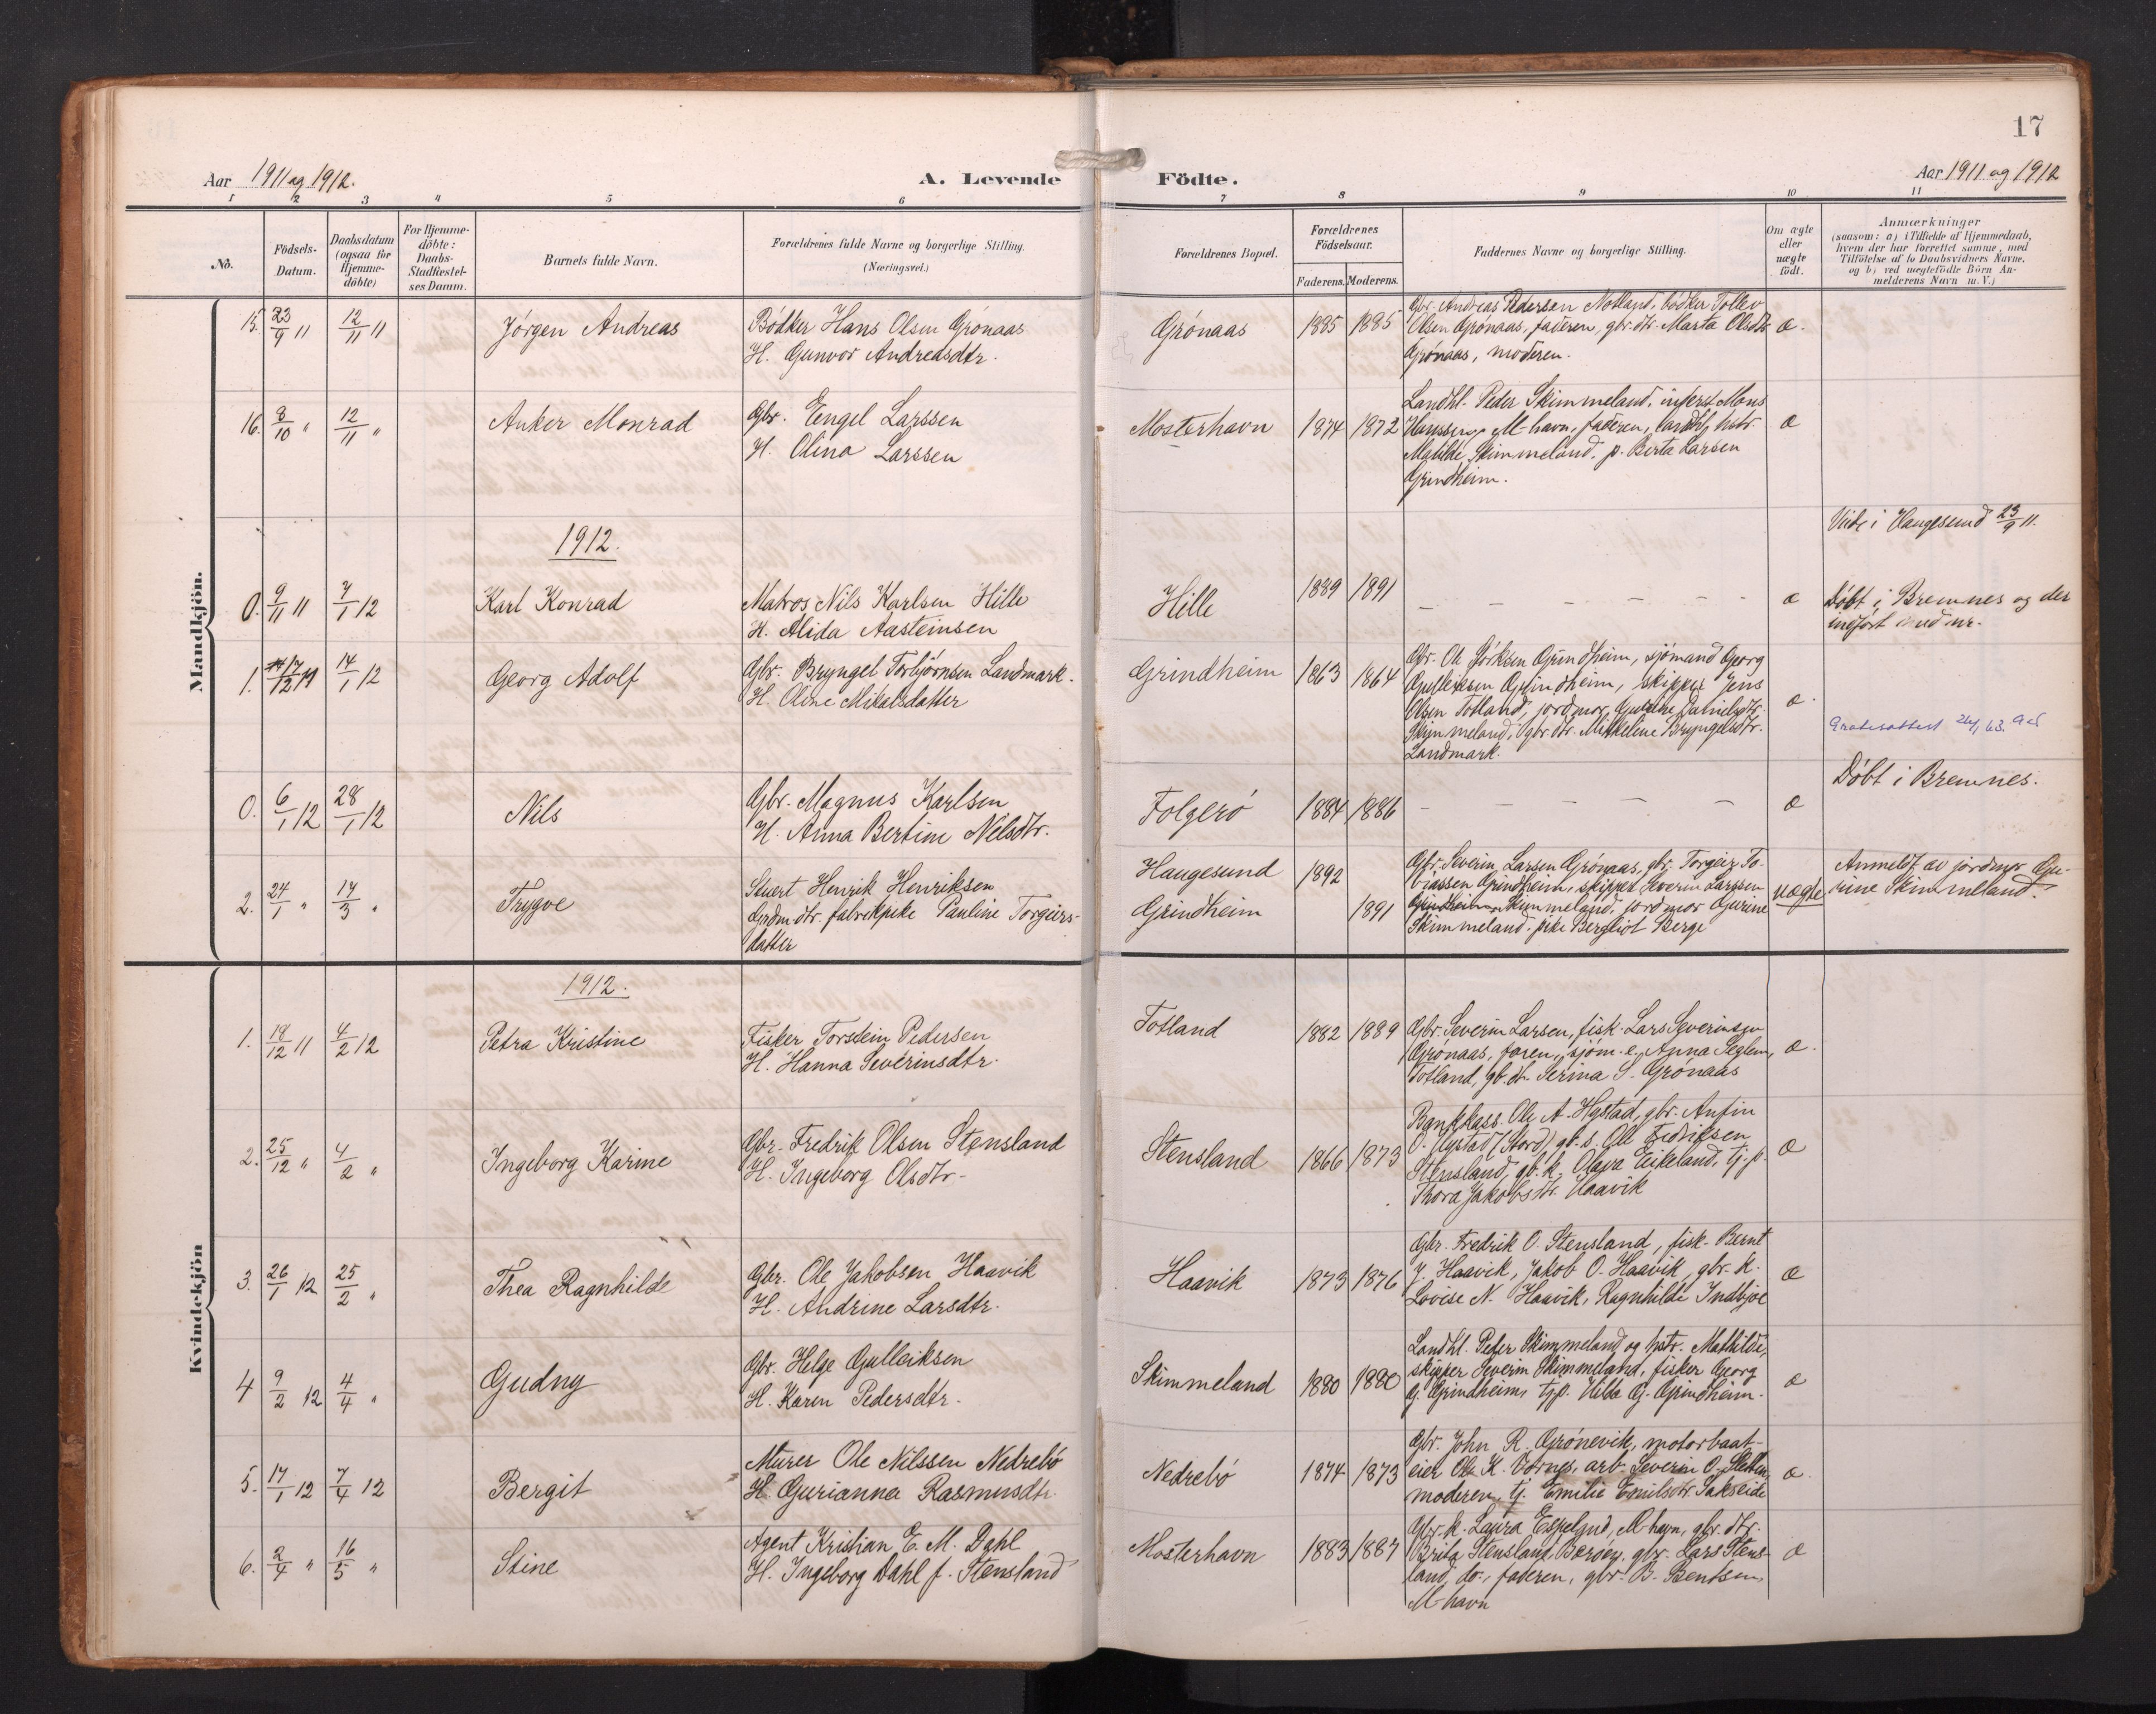 17
Aar 1911 og 1912.
A. Levende
Födte.
Aar 1911 og 1912
1 2 3 4 5 6 7 8 9 10 11
No.
Födsels-Datum.
Daabsdatum (ogsaa for Hjemme-döbte)
For Hjemme-döbte: Daabs-Stadfæstel-ses Datum.
Barnets fulde Navn.
Forældrenes fulde Navne og borgerlige Stilling. (Næringsvei.)
Forældrenes Bopæl.
Forældrenes Födselsaar.
Faderens. Moderens.
Faddernes Navne og borgerlige Stilling.
Om ægte eller uægte födt.
Anmærkninger
(saasom: a) i Tilfælde af Hjemmedaab, hvem der har forrettet samme, med Tilföielse af to Daabsvidners Navne, og b) ved uægtefödte Börn An-melderens Navn m. V.)
Mandkjön.
15. 23/9 11 12/11 11 Jörgen Andreas
Bödker Hans Olsen Grönaas
H. Gunvor Andreasdtr.
Grönaas 1885 1885
Gbr. Andreas Pedersen Notland, bödker Tollev
Olsen Grönaas, faderen, gbr. dtr. Marta Olsdtr.
Grönaas, moderen.
æ.
16. 8/10 " 12/11 " Anker Monrad
Gbr. Engel Larssen
H. Olina Larssen
Mosterhavn 1874 1872
Landhl. Peder Skimmeland, inderst Mons
Hanssen, M-havn, faderen, landhl. hstr.
Matilde Skimmeland, p. Berta Larsen
Grindheim.
æ
1912.
Viede i Haugesund 23/9 11.
0. 9/11 11 7/1 12 Karl Konrad
Matros Nils Karlsen Hille
H. Alida Aasteinsen
Hille 1889 1891
– – – – – –
æ
Döbt i Bremnes og der
indfört med nr.
1. 17/12 11 14/1 12 Georg Adolf
Gbr. Bryngel Torbjörnsen Landmark.
H. Oline Mikalsdatter
Grindheim 1863 1864
Gbr. Ole Grindheim, sjömand Georg
Gulleiksen Grindheim, skipper Jens
Olsen Totland, jordmor Gurine Danielsdtr.
Skimmeland, gbr. dtr. Mikkeline Bryngelsdtr.
Landmark.
æ.
0. 6/1 12 28/1 12 Nils
Gbr. Magnus Karlsen
H. Anna Bertine Nilsdtr.
Folgerö 1884 1886
– – – – –
æ
Döbt i Bremnes.
2. 24/1 " 17/3 " Trygve
Stuert Henrik Henriksen
Grdmdtr. fabrikpike Pauline Torgeirs-
datter
Haugesund 1892
Grindheim 1891
Gbr. Severin Larsen Grönaas, gbr. Torgeir To-
biassen Grindheim, skipper Severin Larssen
Skimmeland, jordmor Gurine
Skimmeland, pike Bergliot Berge
uægte
Anmeldt av jordmor Gu-
rine Skimmeland.
Kvindekjön
1912.
1. 18/12 11 4/2 12 Petra Kristine
Fisker Torstein Pedersen
H. Hanna Severinsdtr.
Totland 1882 1889
Gbr. Severin Larsen, fisk. Lars Severinsen
Grönaas, faren, sjöm. e. Anna Seglem,
Totland, gb. dtr. Serina S. Grönaas
æ.
2. 25/12 " 4/2 " Ingeborg Karine
Gbr. Fredrik Olsen Stensland
H. Ingeborg Olsdtr.
Stensland 1866 1873
Bankkass. Ole A. Hystad, gbr. Anfin
O. Hystad (Stord) gb. s. Ole Fredriksen
Stensland, gb. k. Olava Eikeland, tj. p.
Thora Jakobsdtr. Haavik
æ
3. 26/1 12 25/2 " Thea Ragnhilde
Gbr. Ole Jakobsen Haavik
H. Andrine Larsdtr.
Haavik 1873 1876
Gbr. Fredrik O. Stensland, fisk. Bernt
J. Haavik, Jakob O. Haavik, gbr. k.
Lovise N. Haavik, Ragnhilde Indbjoe
æ
4 9/2 12 4/4 " Gudny
Gbr. Helge Gulleiksen
H. Karen Pedersdtr.
Skimmeland 1880 1880
Landhl. Peder Skimmeland og hstr. Mathilde,
skipper Severin Skimmeland, fisker Georg
G. Grindheim, tjp. Hilda G. Grindheim.
æ
5. 17/1 12 7/4 12 Bergit
Murer Ole Nilssen Nedrebö
H. Gurianna Rasmusdtr.
Nedrebö 1874 1873
Gbr. John R. Grönevik, motorbaat-
eier Ole K. arb. Severin O.
moderen, tj. Emilie Emilsdtr. Sakseide
æ.
6. 2/4 " 16/5 " Stine
Agent Kristian E. M. Dahl
H. Ingeborg Dahl f. Stensland
Mosterhavn 1883 1887
Gbr. k. Laura Espelund, M-havn, gbr. dtr.
Brita Stensland, Beröen, gbr. Lars Stens-
land, do., faderen, gbr. B. Bentsen,
M-havn
æ